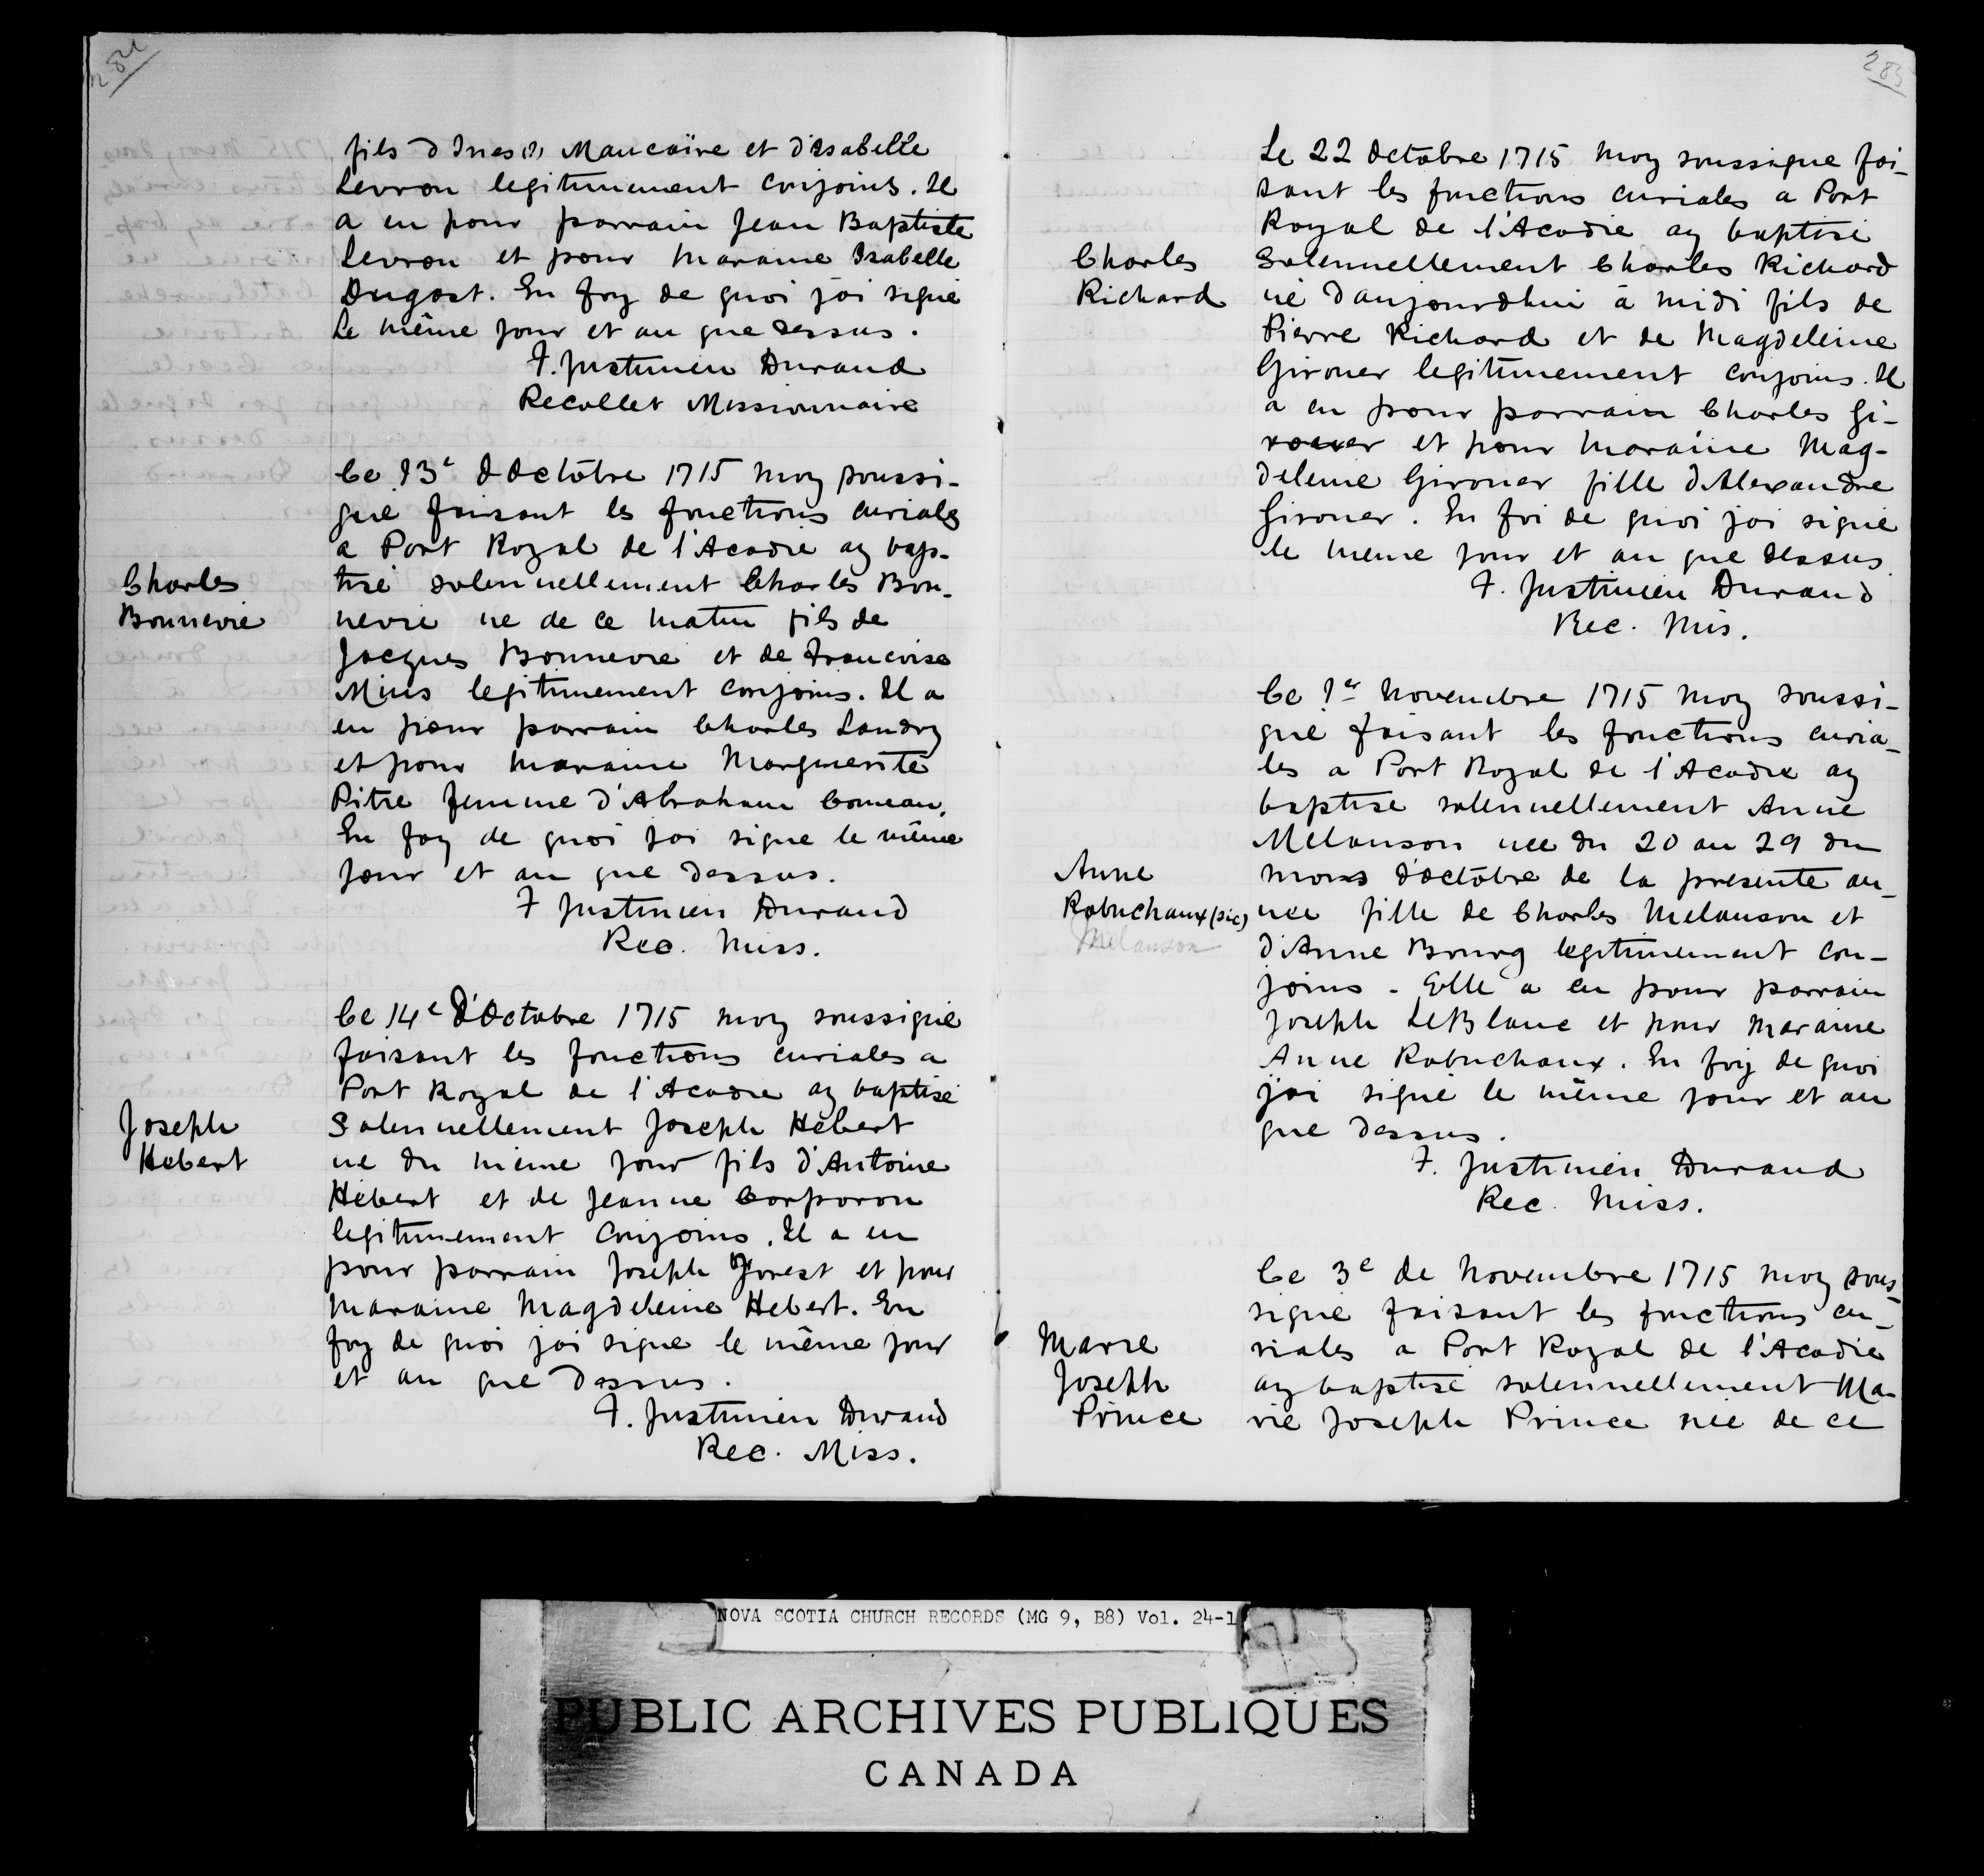 282
fils d Ines (?) Maucaïre et d'Isabelle
Levron legitimement conjoins. Il
a eu pour parrain Jean Baptiste
Levron et pour maraine Isabelle
Dugast. En foy de quoi jai signé
le même jour et an que dessus.
F. Justinien Durand
Recollet Missionnaire
Ce 13e d Octobre 1715 moy soussi-
gné faisant les fonctions curiales
a Port Royal de l'Acadie ay bap-
Charles
Bonnevie
tisé solennellement Charles Bon-
nevie ne de ce matin fils de
Jacques Bonnevie et de Francoise
Mius legitimement conjoins. Il a
eu pour parrain Charles Landry
et pour maraine Marguerite
Pitre femme d'Abraham Comeau.
En foy de quoi jai signe le même
jour et an que dessus.
F Justinien Durand
Rec. Miss.
Ce 14e d'Octobre 1715 moy soussigné
faisant les fonctions curiales a
Port Royal de l'Acadie ay baptisé
Joseph
Hebert
Solennellement Joseph Hébert
ne du meme jour fils d'Antoine
Hébert et de Jeanne Corporon
legitimement conjoins. Il a eu
pour parrain Joseph Forest et pour
maraine Magdeleine Hebert. En
foy de quoi jai signe le même jour
et an que dessus.
F. Justinien Durand
Rec. Miss.
283
Le 22 Octobre 1715 moy soussigne fai-
sant les fonctions curiales a Port
Royal de l'Acadie ay baptisé
Charles
Richard
Solennellement Charles Richard
né daujourdhui à midi fils de
Pierre Richard et de Magdeleine
Girouer legitimement conjoins. Il
a eu pour parrain Charles Gi-
rouer et pour maraine Mag-
deleine Girouer fille d'Alexandre
Girouer. En foi de quoi jai signé
le meme jour et an que dessus.
F. Justinien Durand
Rec. Mis.
Ce 1er Novembre 1715 moy soussi-
gné faisant les fonctions curia-
les a Port Royal de l'Acadie ay
baptisé solennellement Anne
Melanson nee du 20 au 29 du
Anne
Robuchaux (sic)
Melanson
mois d'octobre de la presente an-
nee fille de Charles Melanson et
d'Anne Bourg legitimement con-
joins. Elle a eu pour parrain
Joseph LeBlanc et pour maraine
Anne Robuchaux. En foy de quoi
j'ai signé le même jour et an
que dessus.
F. Justinien Durand
Rec. Miss.
Ce 3e de Novembre 1715 moy sous-
signé faisant les fonctions cu-
Marie
Joseph
Prince
riales a Port Royal de l'Acadie
ay baptisé solennellement Ma-
rie Joseph Prince née de ce
NOVA SCOTIA CHURCH RECORDS (MG 9, B8) Vol. 24-1
PUBLIC ARCHIVES PUBLIQUES
CANADA